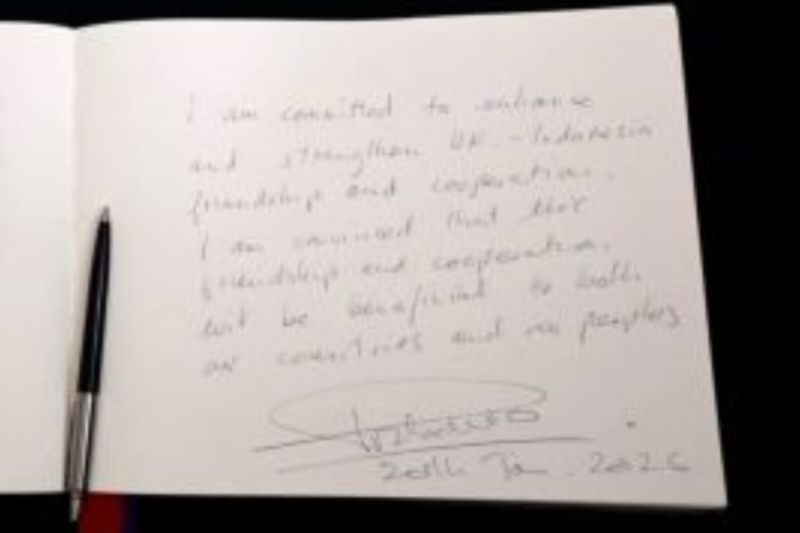 I am committed to enhance
and strengthen UK - Indonesia
friendship and cooperation.
I am convinced that this
friendship and cooperation.
will be beneficial to both
our countries and our peoples
20th Jan. 2026